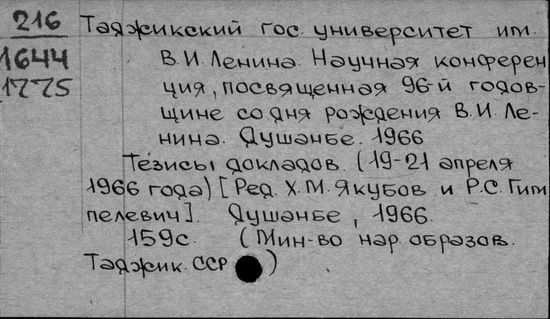 216 Таджикский гос. университет им.
1644 В.И. Ленина. Научная конферен
1775 ция, посвященная 96-й годов-
щине со дня рождения В.И. Ле-
нина. Душанбе. 1966
Тезисы докладов. (19-21 апреля
1966 года) [Ред. Х.М. Якубов и Р.С. Гим
пелевич]. Душанбе, 1966.
159с. (Мин-во нар. образов.
Таджик. ССР)